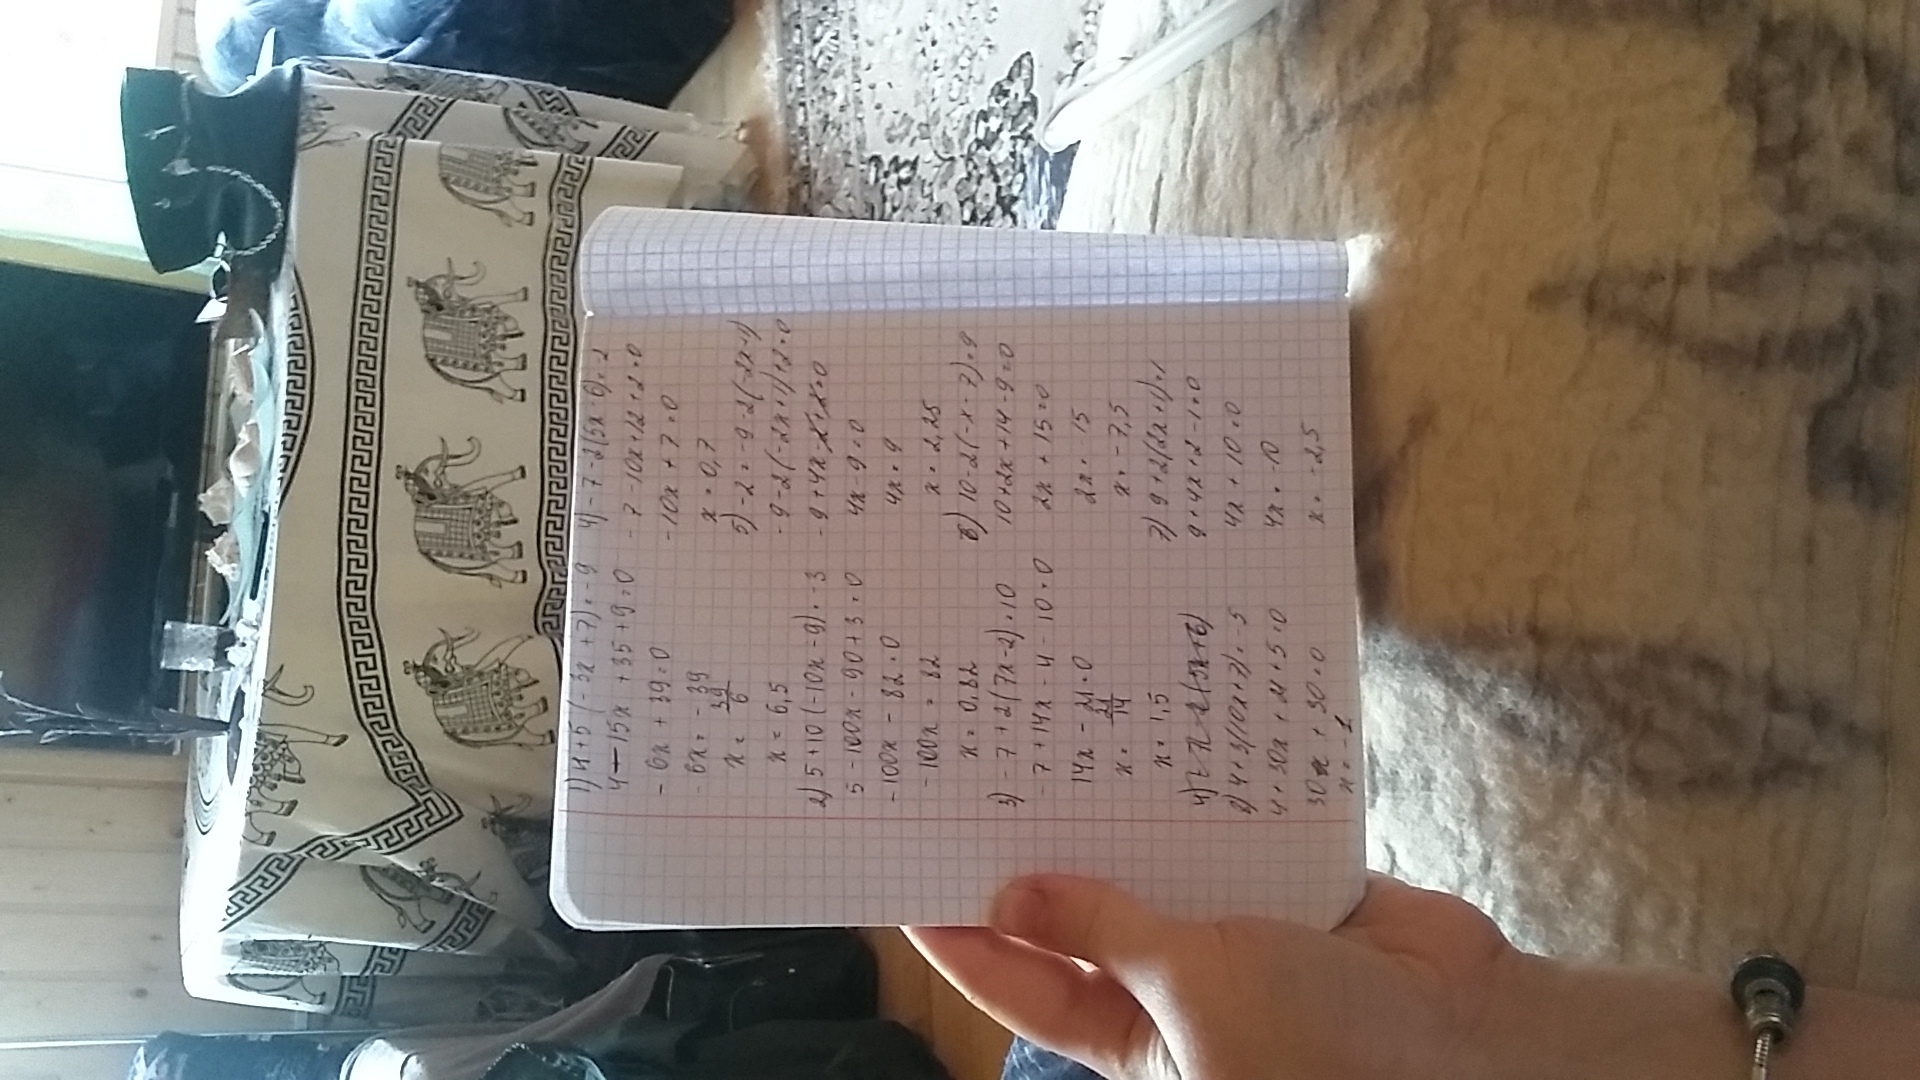 1) 4+5(-3x+7)=-9
4-15x+35+9=0
-6x+39=0
-6x=-39
x=39/6
x=6,5
2) 5+10(-10x-9)=-3
5-100x-90+3=0
-100x-82=0
-100x=82
x=0,82
3) -7+2(7x-2)=10
-7+14x-4-10=0
14x-21=0
x=21/14
x=1,5
4)
8) 4+3(10x+7)=-5
4+30x+21+5=0
30x+30=0
x=-1
4) -7-2(5x-6)=-2
-7-10x+12+2=0
-10x+7=0
x=0,7
5) -2=-9-2(-2x-1)
-9-2(-2x+1)+2=0
-9+4x-2+2=0
4x-9=0
4x=9
x=2,25
6) 10-2(-x-7)=9
10+2x+14-9=0
2x+15=0
2x=-15
x=-7,5
7) 9+2(2x+1)=1
9+4x+2-1=0
4x+10=0
4x=-10
x=-2,5